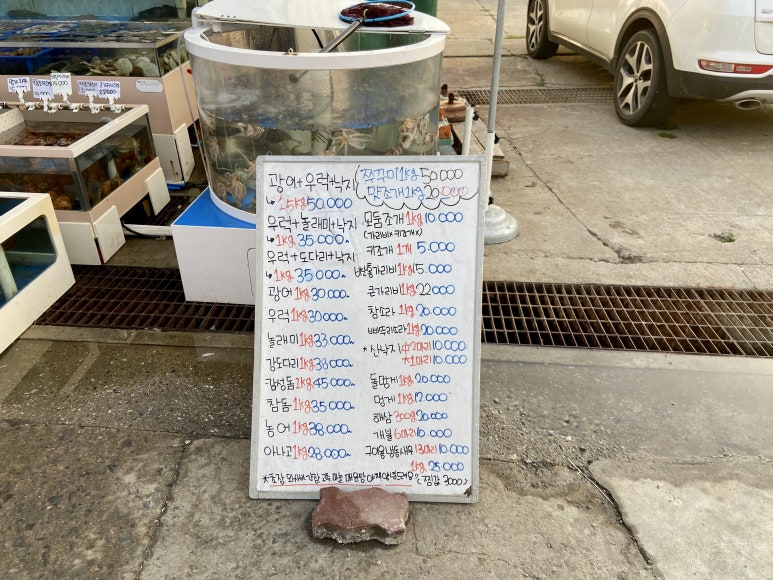 광어+우럭+낙지
↳1.5kg 50.000
우럭+놀래미+낙지
↳1kg 35.000
우럭+도다리+낙지
↳1kg 35.000
광어 1kg 30.000
우럭 1kg 30.000
놀래미 1kg 33.000
강도다리 1kg 38.000
감성돔 1kg 45.000
참돔 1kg 35.000
농어 1kg 38.000
아나고 1kg 28.000
쭈꾸미 1kg 50.000
맛조개 1kg 20.000
모둠조개 1kg 10.000
(가리비x키조개x)
키조개 1개 5.000
홍가리비 1kg 15.000
큰가리비 1kg 22.000
참소라 1kg 20.000
삐뚜리소라 1kg 20.000
*산낙지 中2마리 10.000
大1마리 10.000
돌멍게 1kg 20.000
멍게 1kg 12.000
해삼 300g 20.000
개불 6마리 10.000
구이용냉동새우 13마리 10.000
1kg 25.000
*초장 와사비 간장 고추 마늘 매운탕
(찜값 3000)